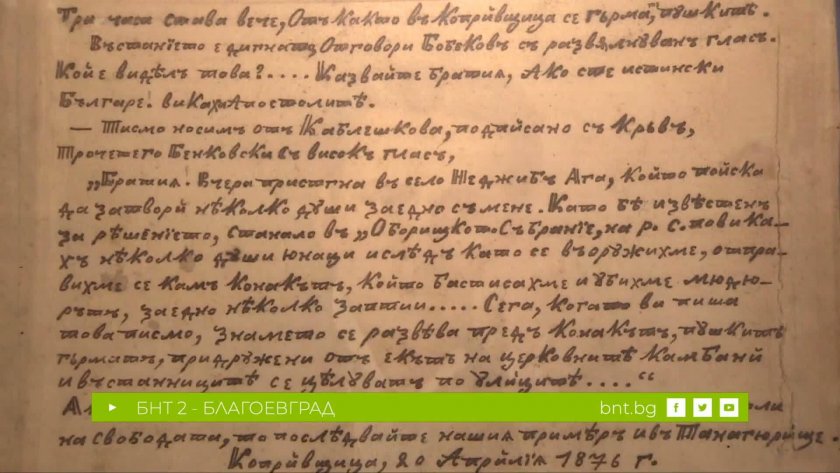 Три часа става вече, Отъ както въ Копривщица се гърмятъ, пушкитѣ.
Въстанието е дигнатъ, Отговори Бобековъ съ развялнуванъ гласъ.
Кой е видѣлъ това?.... Казвайте братия, Ако сте истински
Българе. викаха Апостолитѣ.
— Писмо носимъ отъ Каблешкова, подписано съ Кръвъ,
Прочетѐго Бенковски въ високъ гласъ,
„Братия. Вчера пристигна въ село Неджибъ Ага, който поиска
да затвори нѣколко души заедно съ мене. Като бѣ извѣстенъ
за рѣшението, станало въ „Оборищкото Събрание, на р. с. повика-
хъ нѣколко души юнаци ислѣдъ като се въоружихме, отпра-
вихме се камъ конакътъ, който бастисахме и убихме мюдю-
рътъ, заедно нѣколко заптии..... Сега, когато ви пиша
това писмо, знамето се развѣва предъ конакътъ, пушкитѣ
гърматъ, придружени отъ екътъ на церковнитѣ камбани
и въстанницитѣ се цѣлуватъ по улицитѣ...."
БНТ 2 - БЛАГОЕВГРАД bnt.bg
на свободата, то послѣдвайте нашия примѣръ и въ Панагюрище.
Копривщица, 20 Априлия 1876 г.